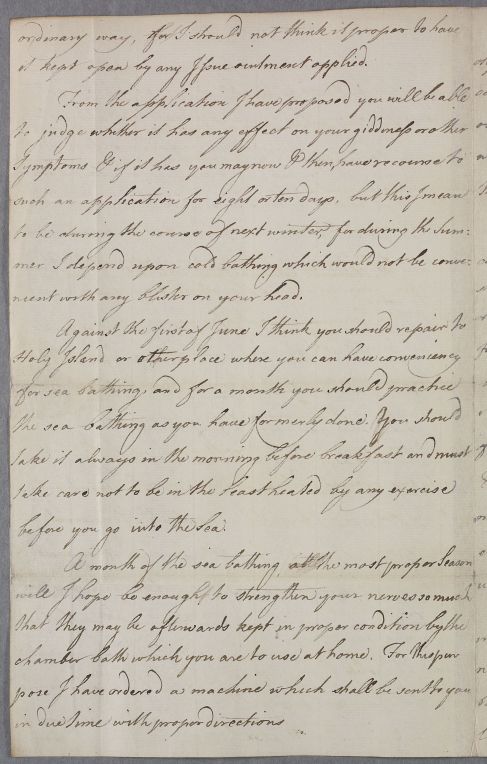 ordinary way, for I should not think it proper to have
it kept open by any Issue ointment applied.
From the application I have proposed you will be able
to judge whither it has any effect on your giddiness or other
Symptoms & if it has you may now & then, have recourse to
such an application for eight or ten days, but this I mean
to be during the course of next winter, for during the Sum=
mer I depend upon cold bathing which would not be conve=
nient with any blister on your head.
Against the first of June I think you should repair to
Holy Island or other place where you can have conveniency
for sea bathing, and for a month you should practice
the sea bathing as you have formerly done. You should
take it always in the morning before breakfast and must
take care not to be in the least heated by any exercise
before you go into the Sea.
A month of the sea bathing, at the most proper Season
will I hope be enough to strengthen your nerves so much
that they may be afterwards kept in proper condition by the
chamber bath which you are to use at home. For this pur
pose I have ordered a machine which shall be sent to you
in due time with proper directions